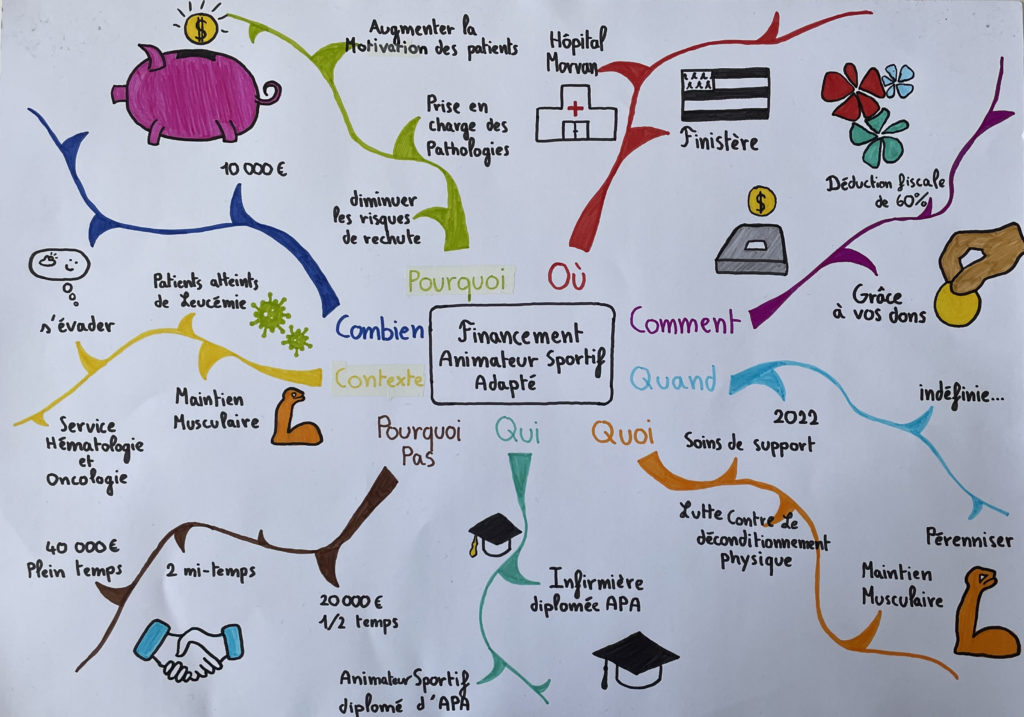 Financement
Animateur Sportif
Adapté
Pourquoi
Augmenter la
Motivation des patients
Prise en
charge des
Pathologies
diminuer
les risques
de rechute
Où
Hôpital
Morvan
Finistère
Comment
Déduction fiscale
de 60%
Grâce
à vos dons
$
$
Quand
2022
indéfinie...
Pérenniser
Quoi
Soins de support
Lutte Contre Le
déconditionnement
physique
Maintien
Musculaire
Qui
Infirmière
diplomée APA
Animateur Sportif
diplomé d'APA
Pourquoi
Pas
20 000 €
1/2 temps
2 mi-temps
40 000 €
Plein temps
Contexte
Maintien
Musculaire
Patients atteints
de Leucémie
s'évader
Service
Hématologie
et
Oncologie
Combien
10 000 €